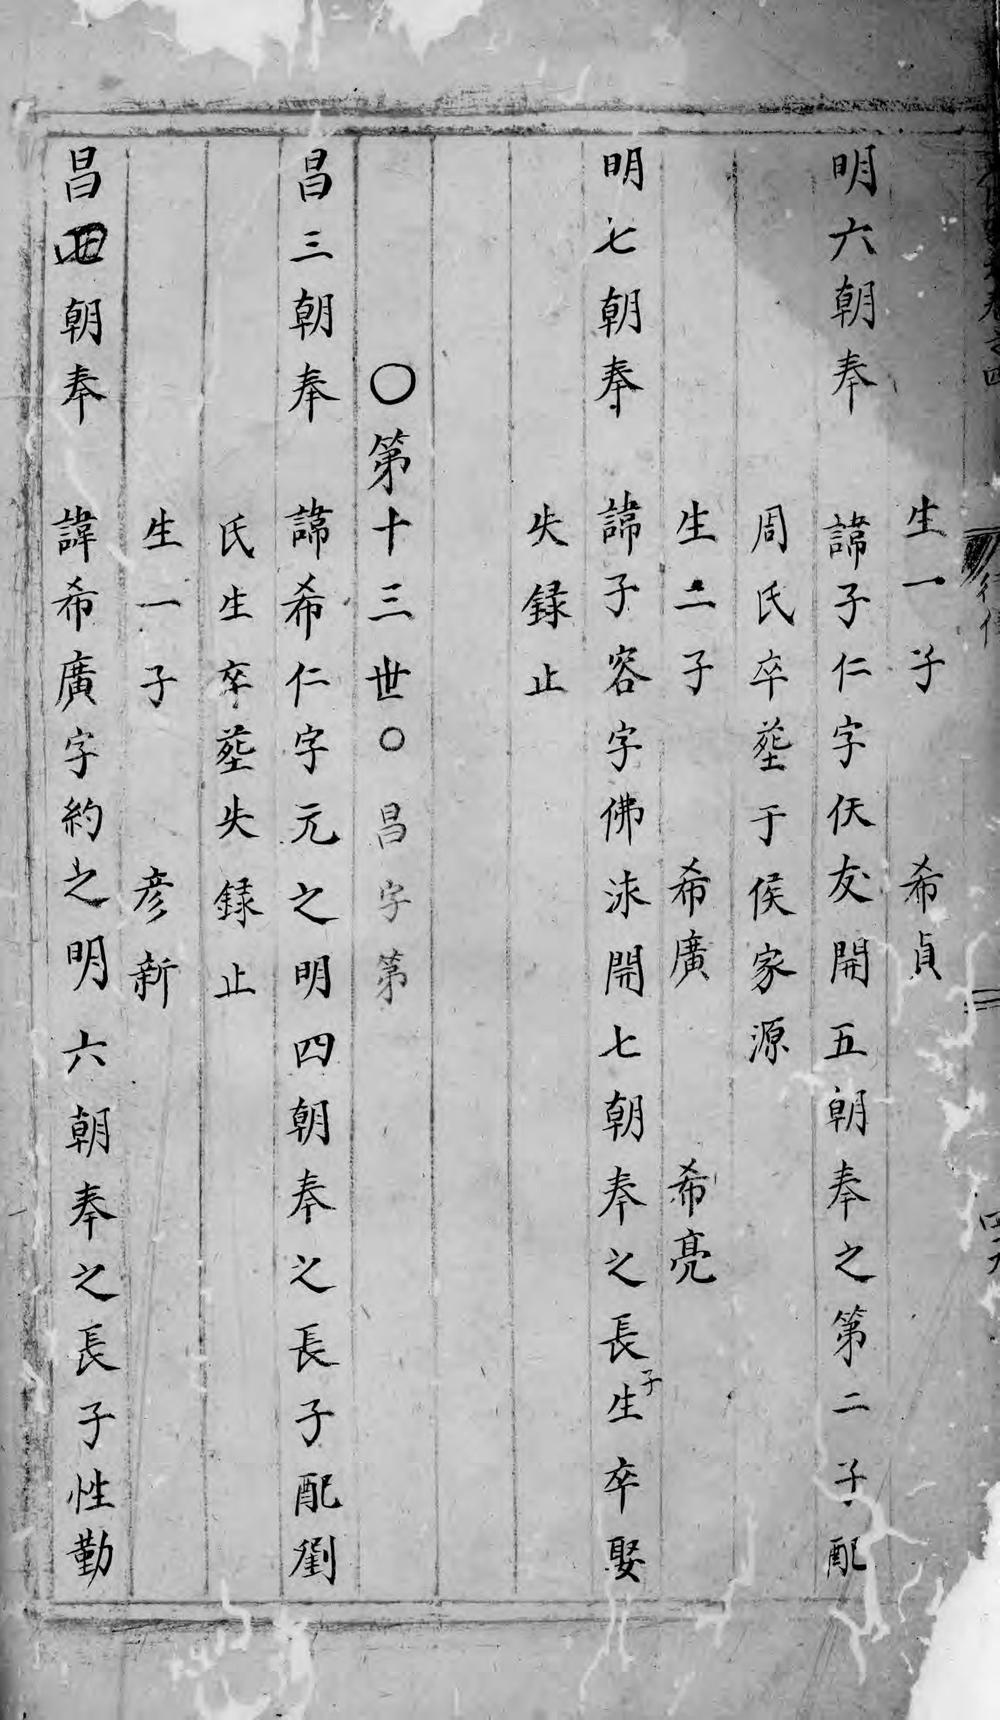 生一子　希貞
明六朝奉　諱子仁字仸友開五朝奉之第二子配
周氏卒塟于侯家源
生二子　希廣　希亮
明七朝奉　諱子容字佛洡開七朝奉之長子生卒娶
失録止
〇第十三世〇昌字第
昌三朝奉　諱希仁字元之明四朝奉之長子配劉
氏生卒塟失録止
生一子　彦新
昌四朝奉　諱希廣字約之明六朝奉之長子性勤